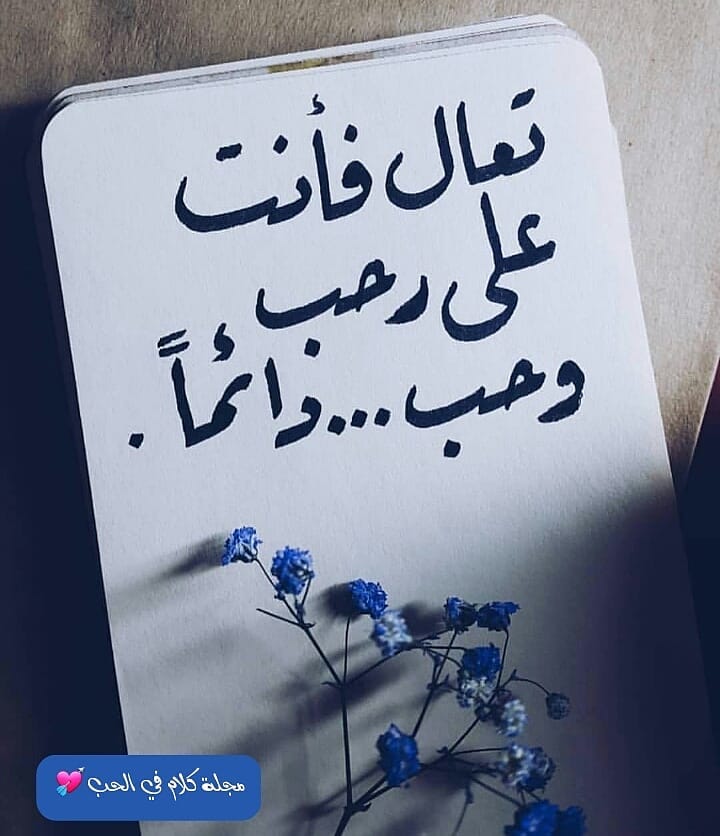 تعال فأنت
على رحب
وحب...دائماً.
مجلة كلام في الحب 💘